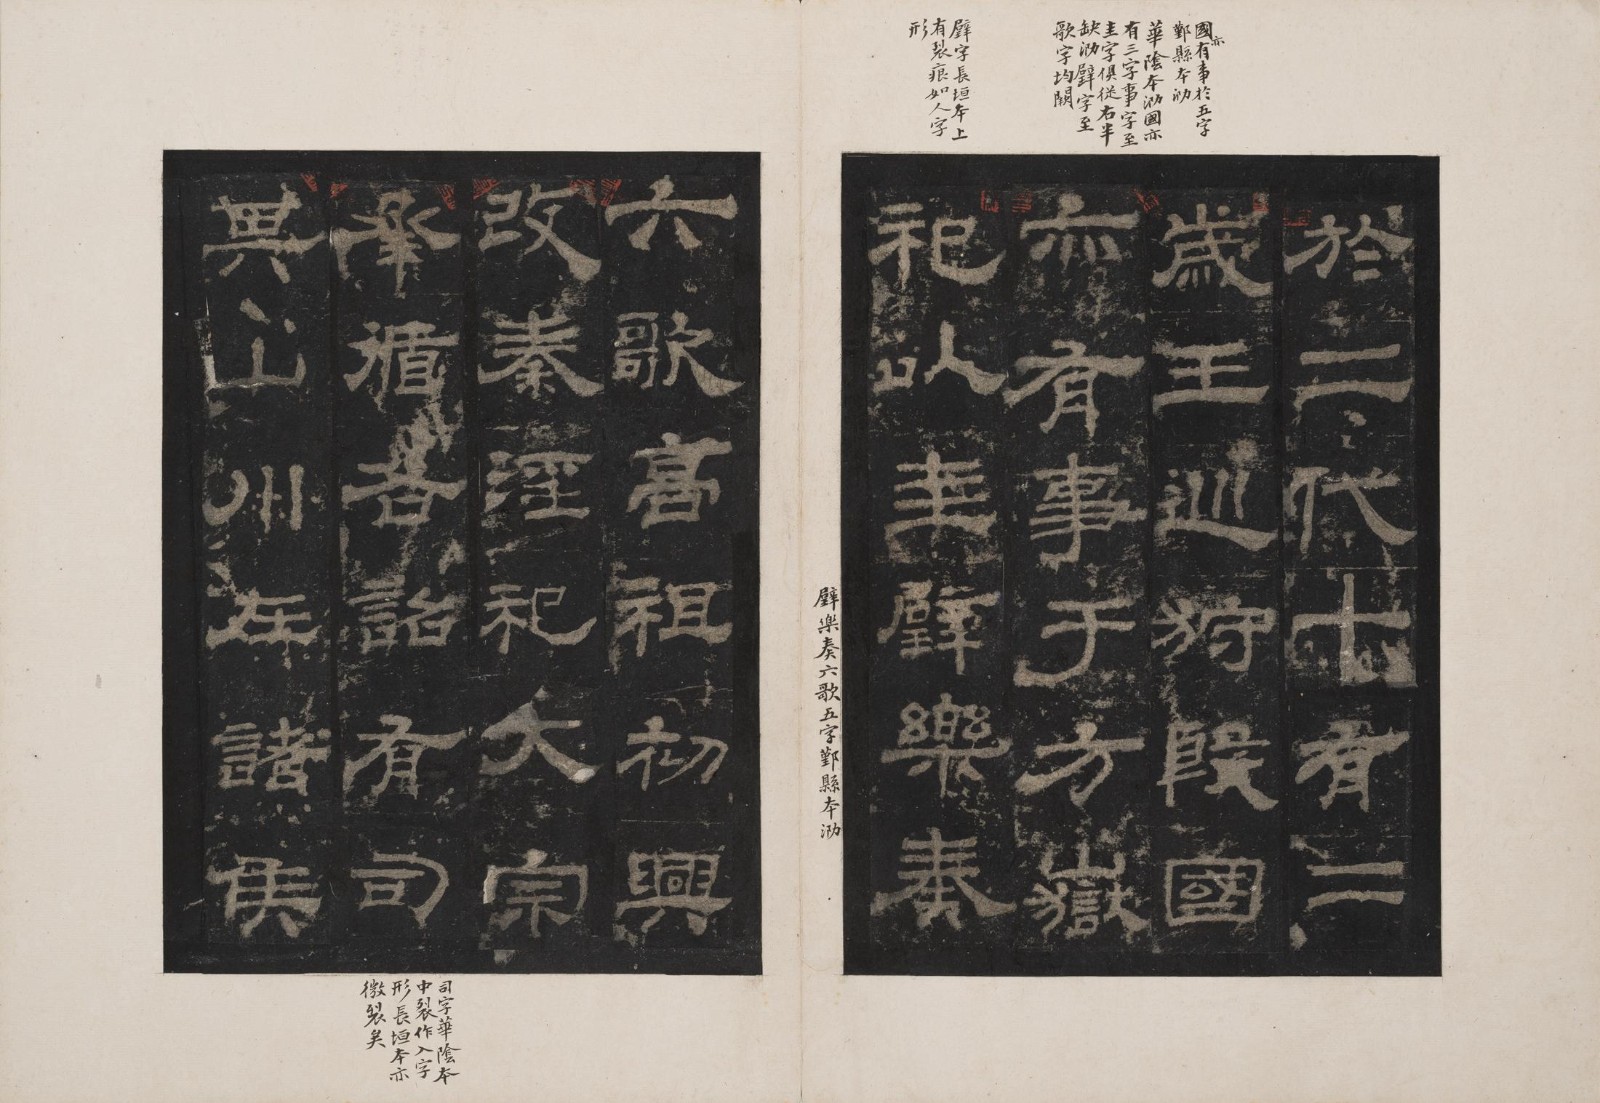 國亦有事於五字
鄞縣本泐
華陰本泐國亦
有三字事字至
圭字俱從右半
缺泐壁字至
歌字均闕
壁字長垣本上
有裂痕如人字
形
於二代十有二
歲王巡狩殷國
亦有事于方嶽
祀以圭璧樂奏
璧樂奏六歌五字鄞縣本泐
六歌高祖初興
改秦淫祀大宗
承循各詔有司
其山川在諸侯
司字華陰本
中裂作入字
形長垣本亦
微裂矣